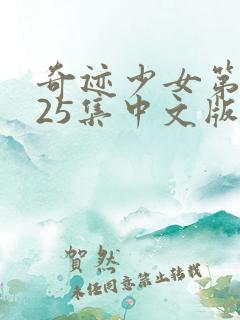 奇迹少女第
25集中文版
贺然
未经同意禁止转载